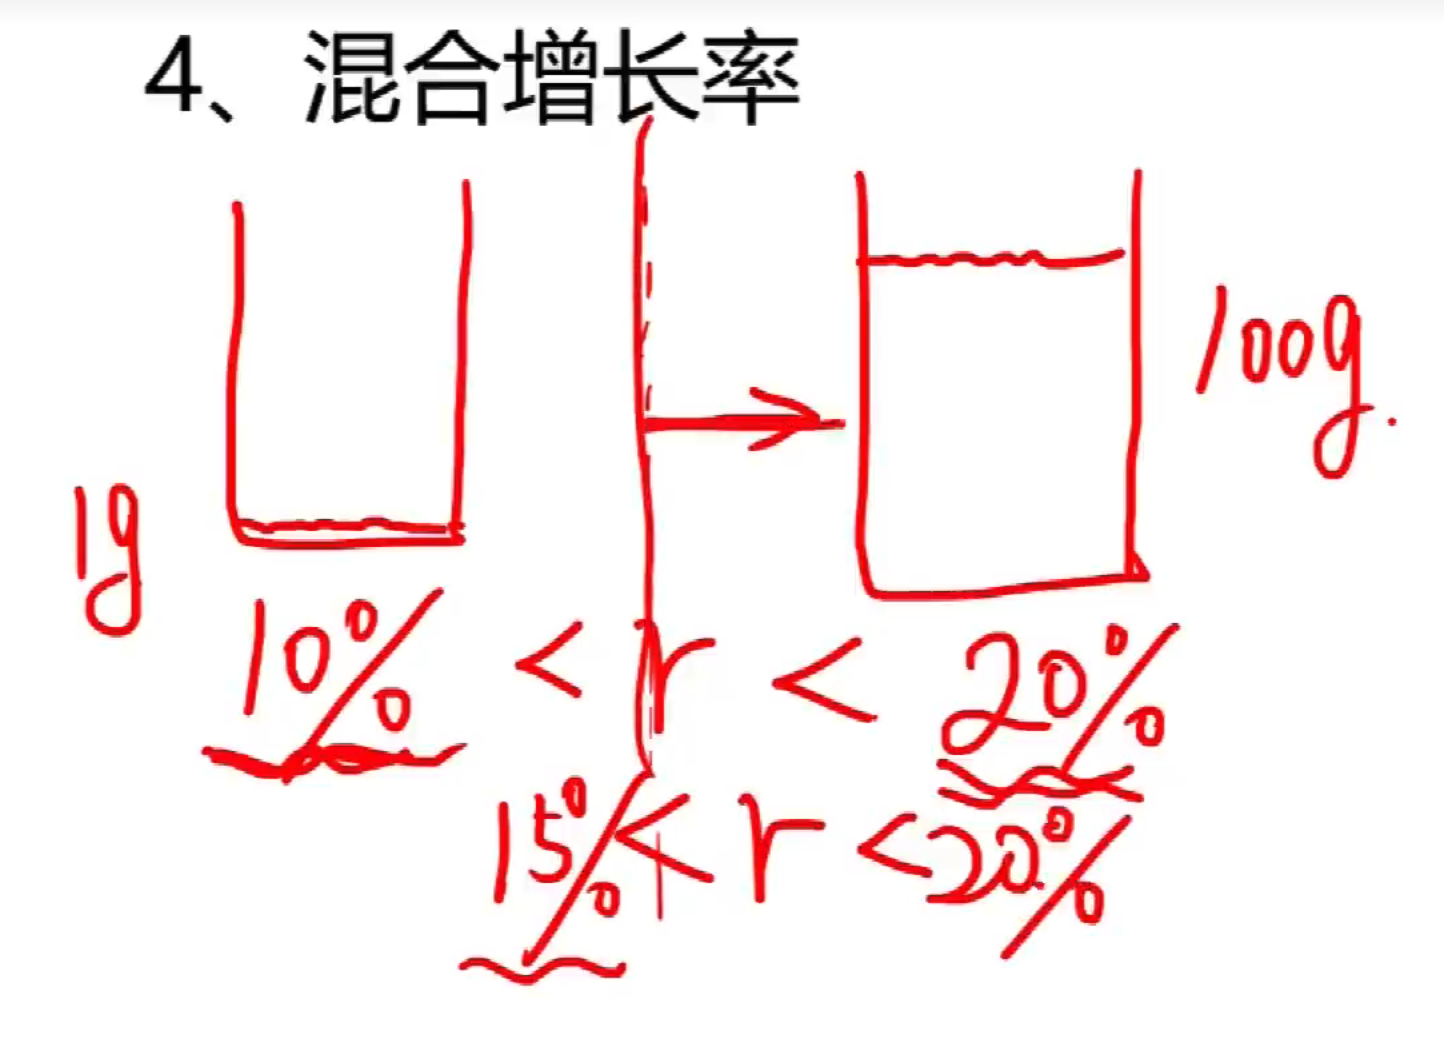 4、混合增长率
100g.
1g
10% < r < 20%
15% < r < 20%